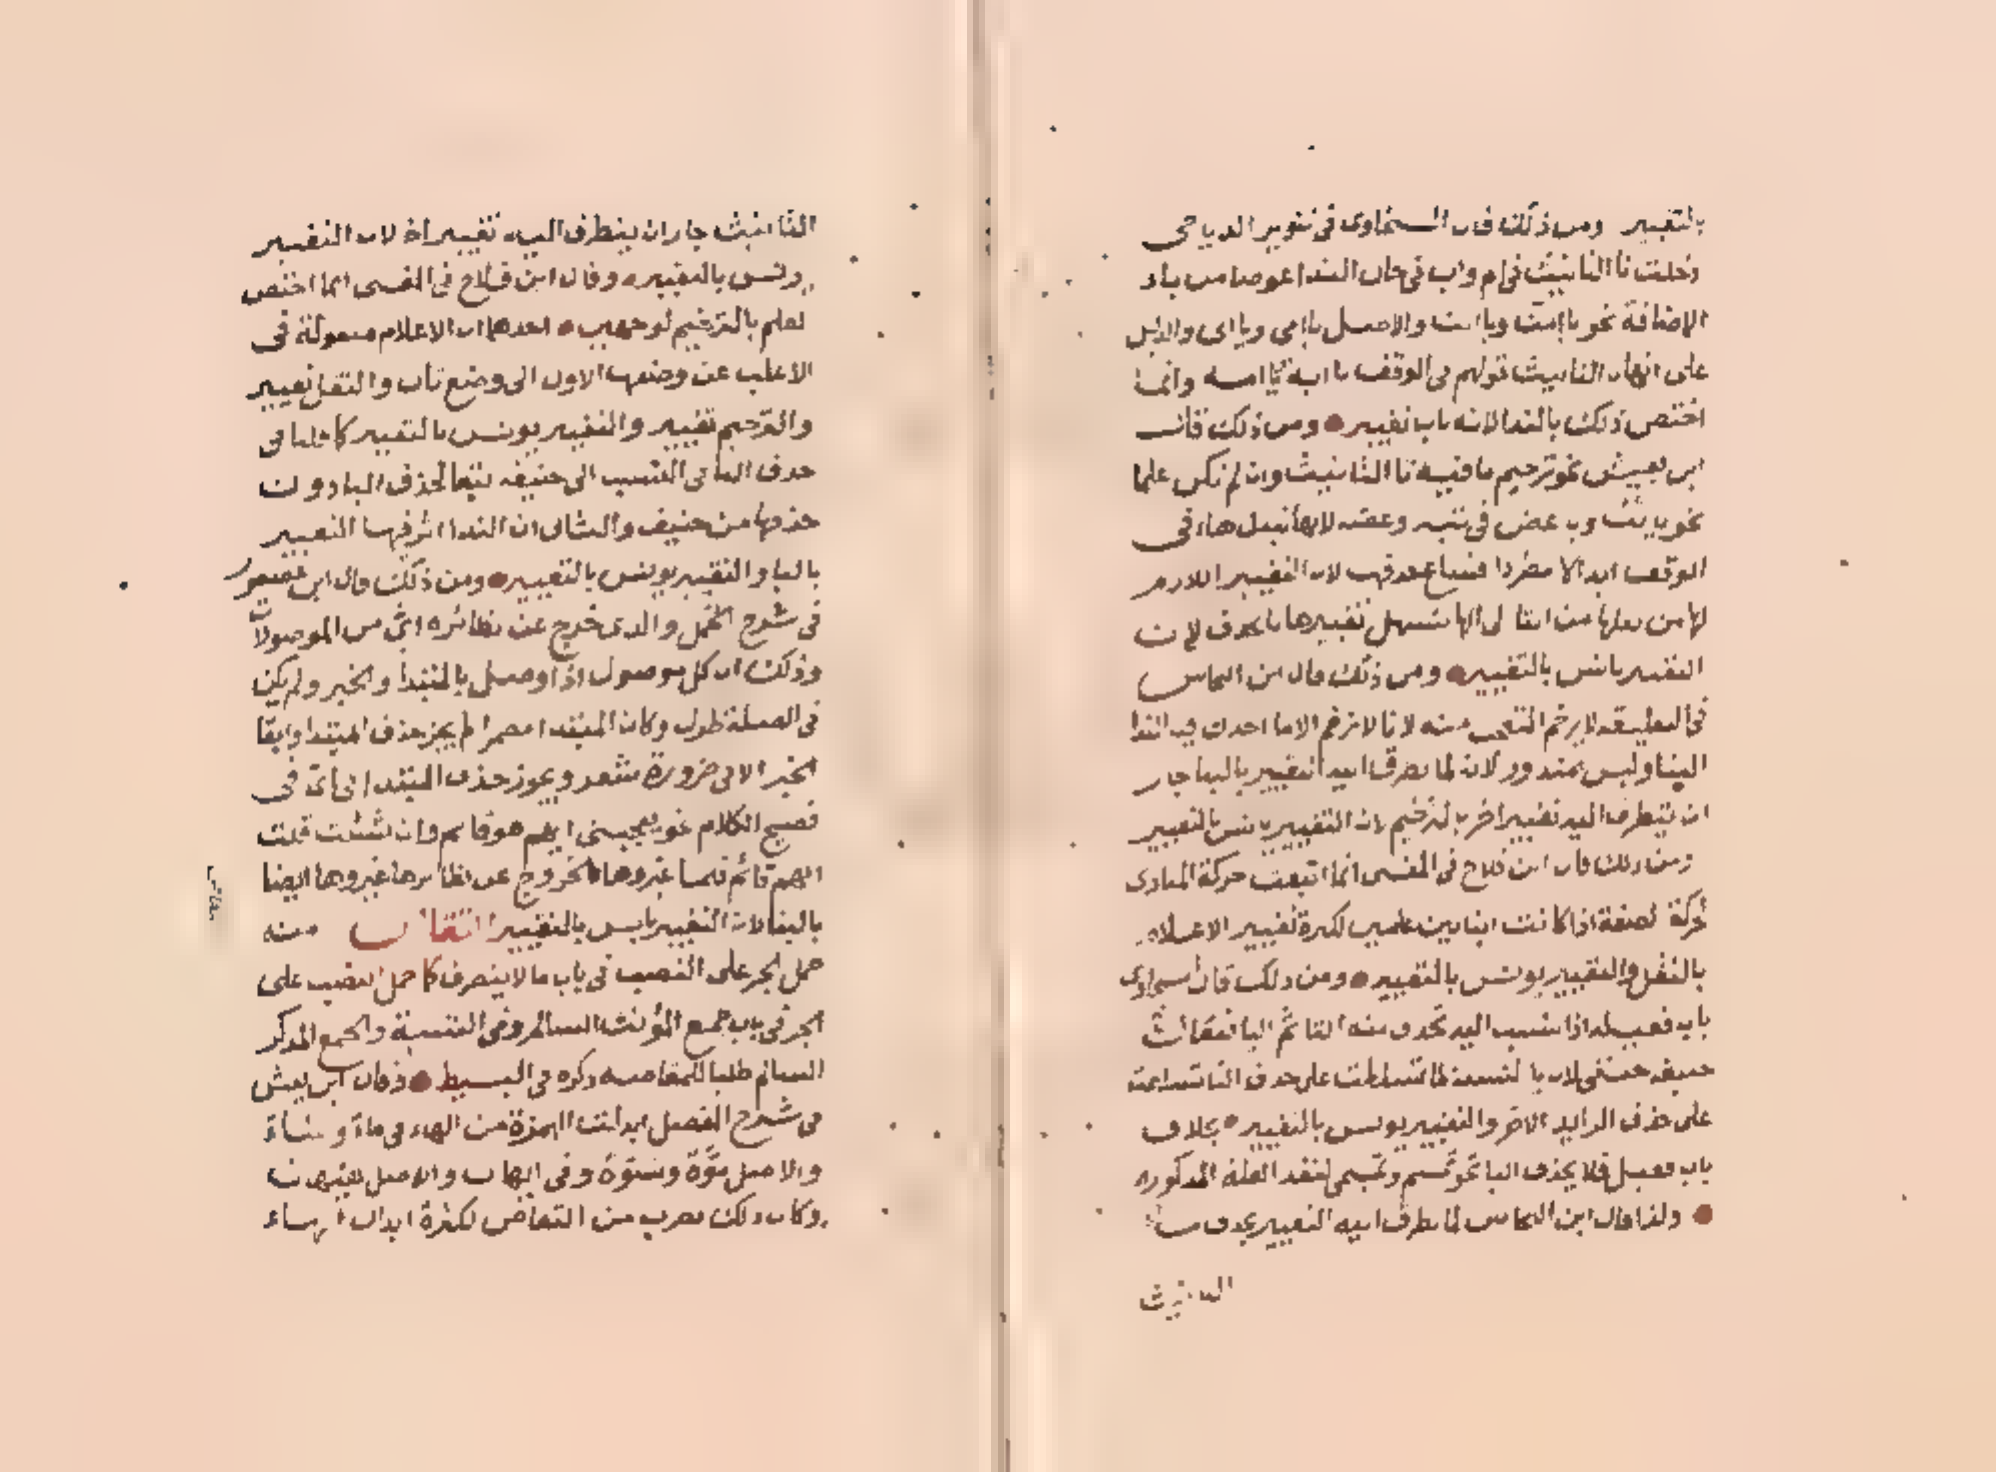 بالتغيير ومن ذلك قال السخاوى فى تنوير الدياجى
دخلت تا التانيث فى ام واب فى حال الندا عوضا من ياء
الاضافة نحو يا امت ويا ابت والاصل يا امى ويا ابى والدليل
على انها للتانيث قولهم فى الوقف يا ابه يا امه وانما
اختص ذلك بالندا لانه باب تغيير ومن ذلك قال
ابن يعيش نحو ترخيم ما فيه تا التانيث وان لم تكن علما
نحو يا ثب ويا عض فى ثبة وعضه لانها تبدل هاء فى
الوقف ابدا مطردا فساغ حذفها لان التغيير اللازم
لها من نقلها من التا الى الها تسهل تغييرها بالحذف لان
التغيير يانس بالتغيير ومن ذلك قال ابن النحاس
فى التعليقه لا يرخم المتعجب منه لانا لا نرخم الا ما احدث فيه الندا
البنا وليس بمندوب لانه لما تطرق اليه التغيير بالبنا جاز
ان يتطرف اليه تغيير اخر بالترخيم لان التغيير يانس بالتغيير
ومن ذلك قال ابن فلاح فى المغنى انما اتبعت حركة المنادى
حركة الصفة اذا كانت ابنا بين علمين لكثرة تغيير الاعلام
بالنقل والتغيير يونس بالتغيير ومن ذلك قال السخاوى
باب فعيلة اذا نسبت اليه تحذف منه التا ثم اليا فتقول
حنيفه حنفى لان يا النسبة لما تسلطت على حذف التا تسلطت
على حذف الزايد الاخر والتغيير يونس بالتغيير بخلاف
باب فعيل فلا يحذف اليا نحو تميم وتميمى لفقد العلة المذكوره
ولذا قال ابن النحاس لما تطرف اليه التغيير بحذف تا
التانيث
التانيث جاز ان يتطرف اليه تغيير اخر لان التغيير
يونس بالتغيير وقال ابن فلاح فى المغنى انما اختص
العلم بالترخيم لوجهين احدهما ان الاعلام منقولة فى
الاغلب عن وضعها الاول الى وضع ثان والنقل تغيير
والترخيم تغيير والتغيير يونس بالتغيير كما قلنا فى
حذف اليا فى النسب الى حنيفه تبعا لحذف التا دون
حذفها من حنيف والثانى ان الندا اثر فيها التغيير
بالبنا والتغيير يونس بالتغيير ومن ذلك قال ابن عصفور
فى شرح الجمل والذى خرج عن نظائره اى من الموصولات
وذلك ان كل موصول اذا وصل بالمبتدا والخبر ولم يكن
فى الصلة طول وكان المبتدا مضمرا لم يجز حذف المبتدا وابقا
الخبر الا فى ضرورة شعر ويجوز حذف المبتدا فى اى فى
فصيح الكلام نحو يعجبنى ايهم هو قائم وان شئت قلت
ايهم قائم فلما غيروها بالخروج عن نظائرها غيروها ايضا
بالبنا لان التغيير يانس بالتغيير التقاص منه
حمل الجر على النصب فى باب ما لا ينصرف كما حمل النصب على
الجر فى باب جمع المؤنث السالم وفى التثنية والجمع المذكر
السالم طلبا للمقاصه ذكره فى البسيط وقال ابن يعيش
فى شرح المفصل ابدلت الهمزة من الهاء فى ماء وشاء
والاصل موه وشوه وفى ايهات والاصل هيهات
وكان ذلك لضرب من التقاص لكثرة ابدال الهاء